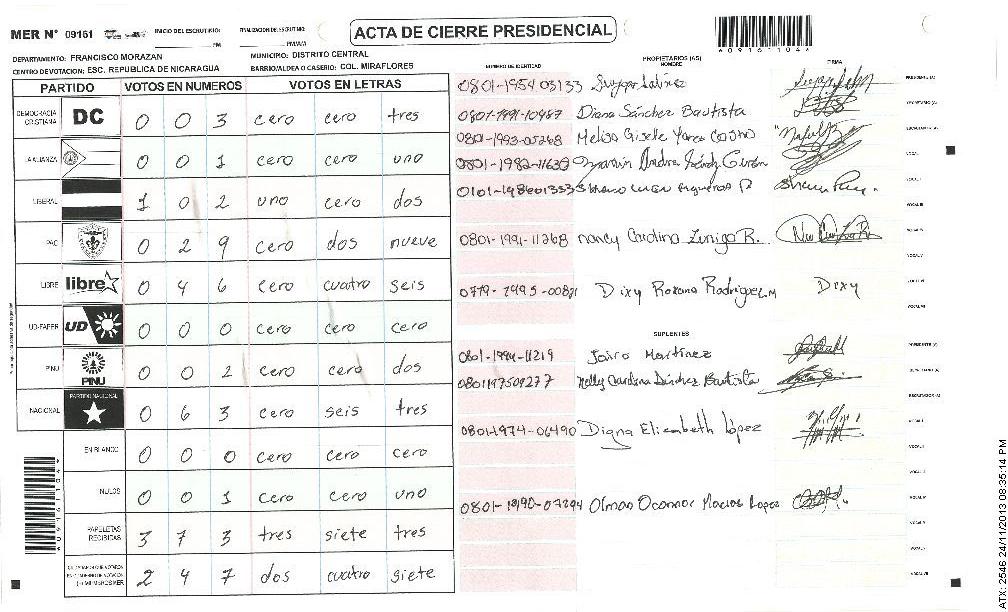 MER N° 09161 INICIO DEL ESCRUTINIO: FINALIZACION DEL ESCRUTINIO:
ACTA DE CIERRE PRESIDENCIAL
DEPARTAMENTO: FRANCISCO MORAZAN MUNICIPIO: DISTRITO CENTRAL
CENTRO DE VOTACION: ESC. REPUBLICA DE NICARAGUA BARRIO/ALDEA O CASERIO: COL. MIRAFLORES
PARTIDO VOTOS EN NUMEROS VOTOS EN LETRAS
DEMOCRACIA CRISTIANA DC 0 0 3 cero cero tres
LA ALIANZA 0 0 1 cero cero uno
LIBERAL 1 0 2 uno cero dos
PAC 0 2 9 cero dos nueve
LIBRE libre 0 4 6 cero cuatro seis
UD-FAPER UD 0 0 0 cero cero cero
PINU PINU 0 0 2 cero cero dos
NACIONAL PARTIDO NACIONAL 0 6 3 cero seis tres
EN BLANCO 0 0 0 cero cero cero
NULOS 0 0 1 cero cero uno
PAPELETAS RECIBIDAS 3 7 3 tres siete tres
2 4 7 dos cuatro siete
NUMERO DE IDENTIDAD PROPIETARIOS (AS) NOMBRE FIRMA
0801-1954 03133 PRESIDENTE (A)
0801-1991-10487 Diana Sánchez Bautista SECRETARIO (A)
0801-1993-05268 Melisa Gisele ESCRUTADOR (A)
0801-1982-11633 VOCAL I
VOCAL II
VOCAL III
0801-1991-11268 nancy Carolina Zuniga R. VOCAL IV
VOCAL V
Dixy Roxana Rodriguez M Dixy VOCAL VI
VOCAL VII
SUPLENTES
0801-1994-11219 Jairo Martinez PRESIDENTE (A)
0801197509277 Nelly Carolina Sánchez Bautista SECRETARIO (A)
ESCRUTADOR (A)
0801-1974-06490 Digna Elizabeth López VOCAL I
VOCAL II
VOCAL III
Olman Oconnor Macias Lopez VOCAL IV
VOCAL V
VOCAL VI
VOCAL VII
ATX: 2546 24/11/2013 08:35:14 PM